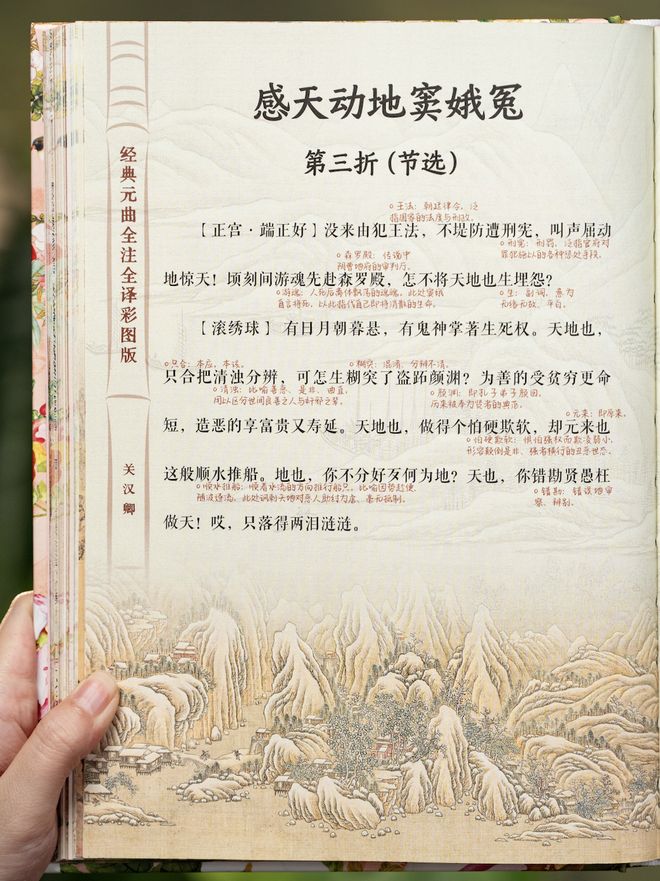 感天动地窦娥冤
第三折（节选）
经典元曲全注全译彩图版
关汉卿
王法：朝廷律令，泛
指国家的法度与刑政。
【正宫·端正好】没来由犯王法，不堤防遭刑宪，叫声屈动
森罗殿：传说中
阴曹地府的审判厅。
刑宪：刑罚，泛指官府对
罪犯施以的各种惩处手段。
地惊天！顷刻间游魂先赴森罗殿，怎不将天地也生埋怨？
游魂：人死后离体飘荡的魂魄，此处窦娥
自言将死，以此指代自己即将消散的生命。
生：副词，意为
无缘无故、平白。
【滚绣球】有日月朝暮悬，有鬼神掌著生死权。天地也，
只合：本应，本该。
糊突：混淆，分辨不清。
只合把清浊分辨，可怎生糊突了盗跖颜渊？为善的受贫穷更命
清浊：比喻善恶、是非、曲直，
用以区分世间良善之人与奸邪之辈。
颜渊：即孔子弟子颜回，
历来被奉为贤者的典范。
元来：即原来。
短，造恶的享富贵又寿延。天地也，做得个怕硬欺软，却元来也
怕硬欺软：惧怕强权而欺凌弱小，
形容颠倒是非、强者横行的丑恶世态。
这般顺水推船。地也，你不分好歹何为地？天也，你错勘贤愚枉
顺水推船：顺着水流的方向推行船只，比喻因势趁便、
随波逐流，此处讽刺天地对恶人助纣为虐、毫无抵制。
错勘：错误地审
察、辨别。
做天！哎，只落得两泪涟涟。